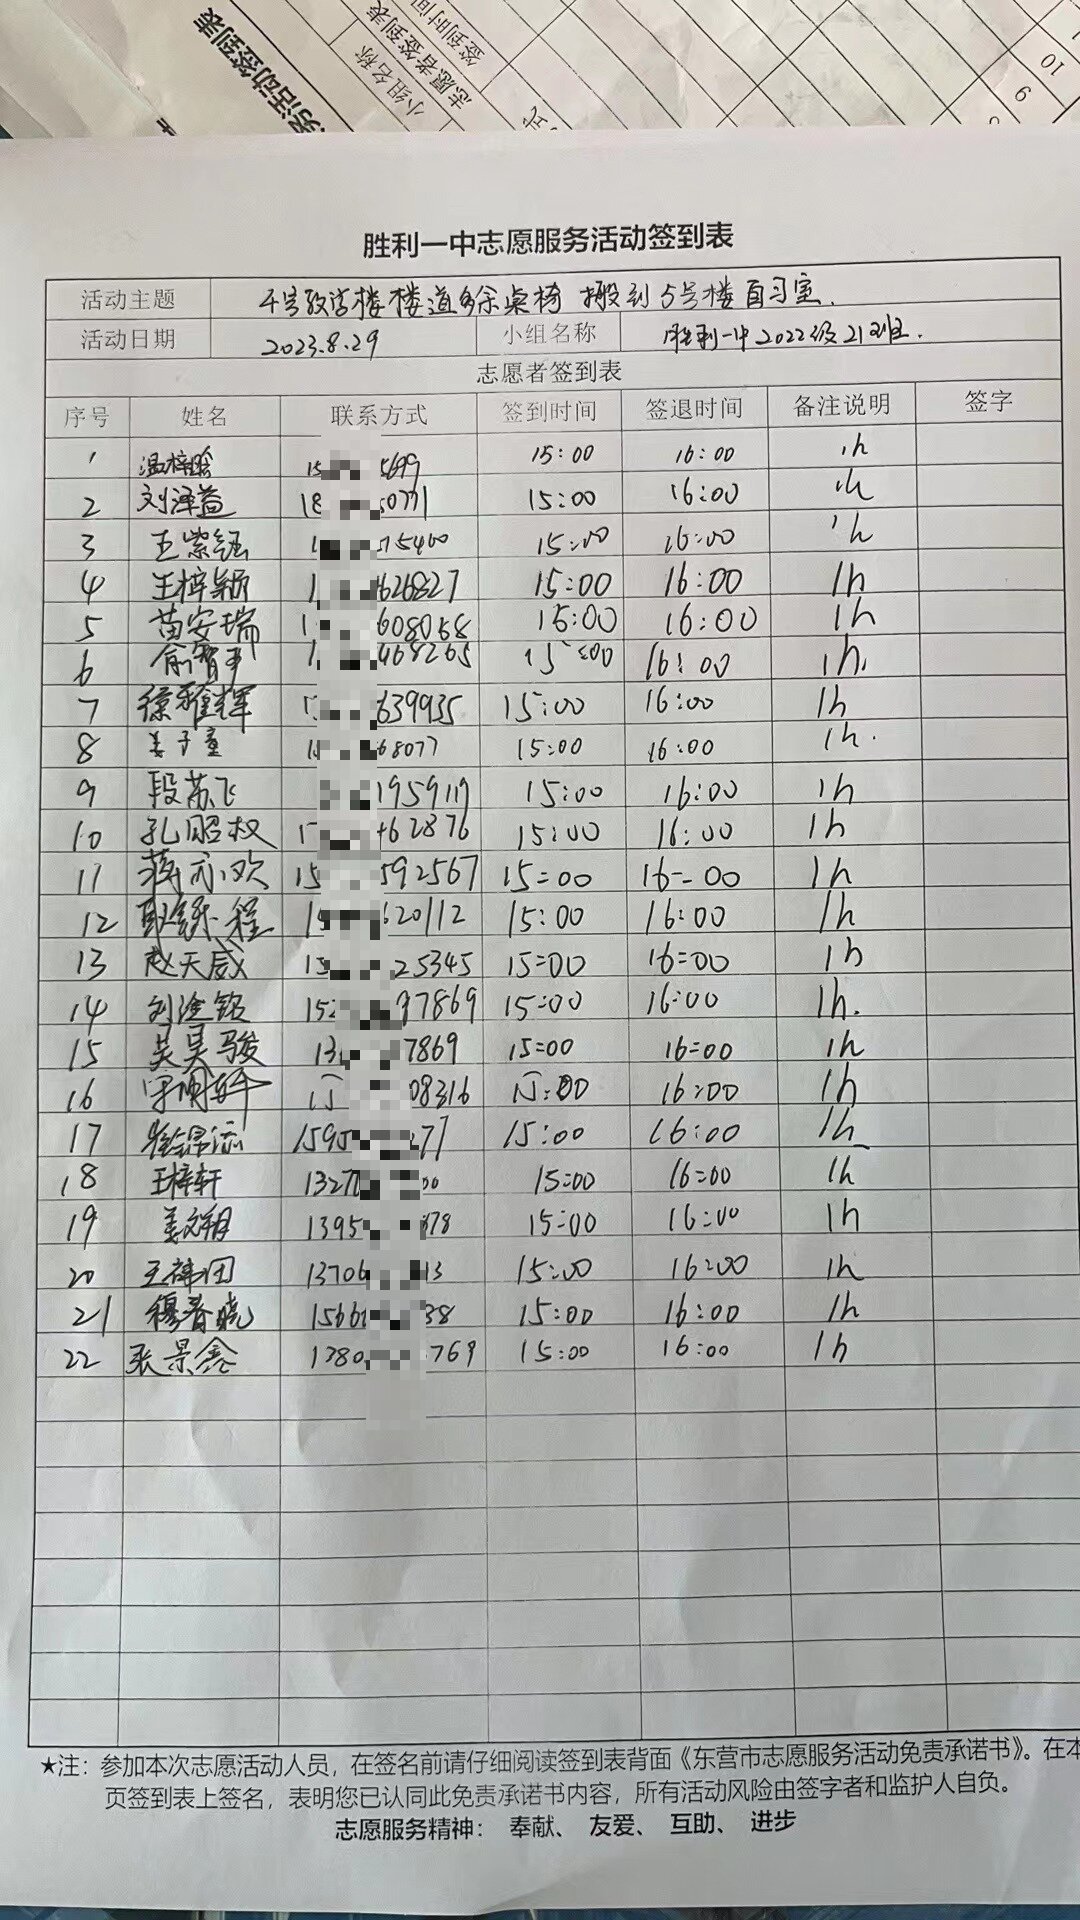 务活动签到表
小组名称
志愿者签到表
签到时间
式
10
9
胜利一中志愿服务活动签到表
活动主题 4号教学楼楼道多余桌椅搬到5号楼自习室.
活动日期 2023.8.29 小组名称 胜利一中2022级21班.
志愿者签到表
序号 姓名 联系方式 签到时间 签退时间 备注说明 签字
1 15 5699 15:00 16:00 1h
2 刘泽益 18 50771 15:00 16:00 1h
3 王紫钰 1 75460 15:00 16:00 1h
4 王梓颖 1 626827 15:00 16:00 1h
5 苗安瑞 1 608068 15:00 16:00 1h
6 1 468265 15:00 16:00 1h.
7 徐雅辉 1 639935 15:00 16:00 1h
8 姜子童 1 68077 15:00 16:00 1h.
9 段苏飞 1959119 15:00 16:00 1h
10 孔昭权 1 462876 15:00 16:00 1h
11 蒋永欢 15 592567 15:00 16:00 1h
12 15 620112 15:00 16:00 1h
13 赵天威 15 25345 15:00 16:00 1h
14 152 37869 15:00 16:00 1h.
15 吴昊骏 13 7869 15:00 16:00 1h
16 15 08316 15:00 16:00 1h
17 1595 277 15:00 16:00 1h
18 王梓轩 1327 00 15:00 16:00 1h
19 姜文翔 1395 878 15:00 16:00 1h
20 13706 13 15:00 16:00 1h
21 穆春晓 1566 38 15:00 16:00 1h
22 张景鑫 1380 769 15:00 16:00 1h
★注：参加本次志愿活动人员，在签名前请仔细阅读签到表背面《东营市志愿服务活动免责承诺书》。在本
页签到表上签名，表明您已认同此免责承诺书内容，所有活动风险由签字者和监护人自负。
志愿服务精神： 奉献、 友爱、 互助、 进步